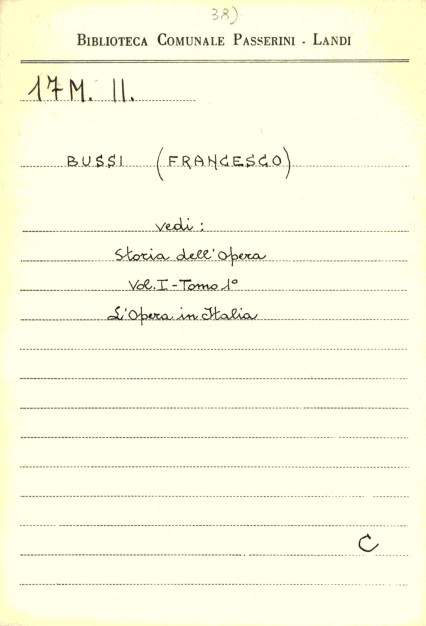 38)
BIBLIOTECA COMUNALE PASSERINI - LANDI
17 M. II.
BUSSI (FRANCESCO)
vedi:
Storia dell'Opera
Vol. I - Tomo 1°
L'Opera in Italia
C